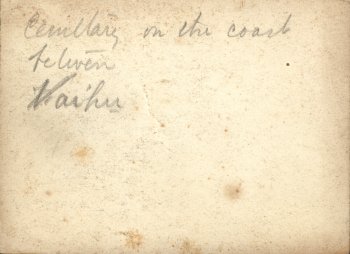 Cemetary on the coast
between
Waihu